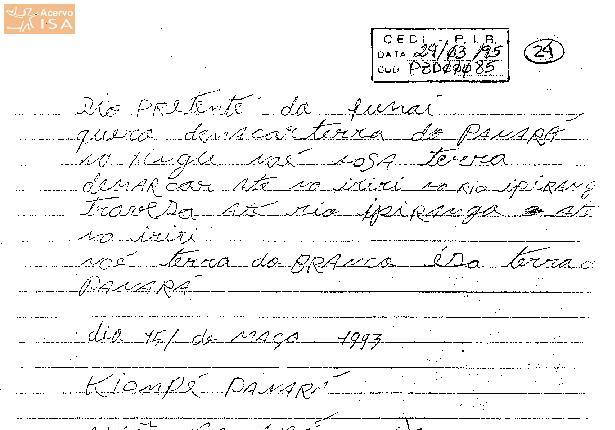 Acervo
ISA
CEDI P.I.B.
DATA 29/03/95
COD. PZD00085
29
Dio PRETENTE da funai
quero demacar terra do PANARÁ
no noé nosa terra
demarcar ate no iriri no RIO ipirang
Travesa até rio ipiranga ate
no iriri
noé terra do BRANCO ésa terra
PANARÁ
dia 15/ de MAÇO 1993
Kiompé PANARÁ